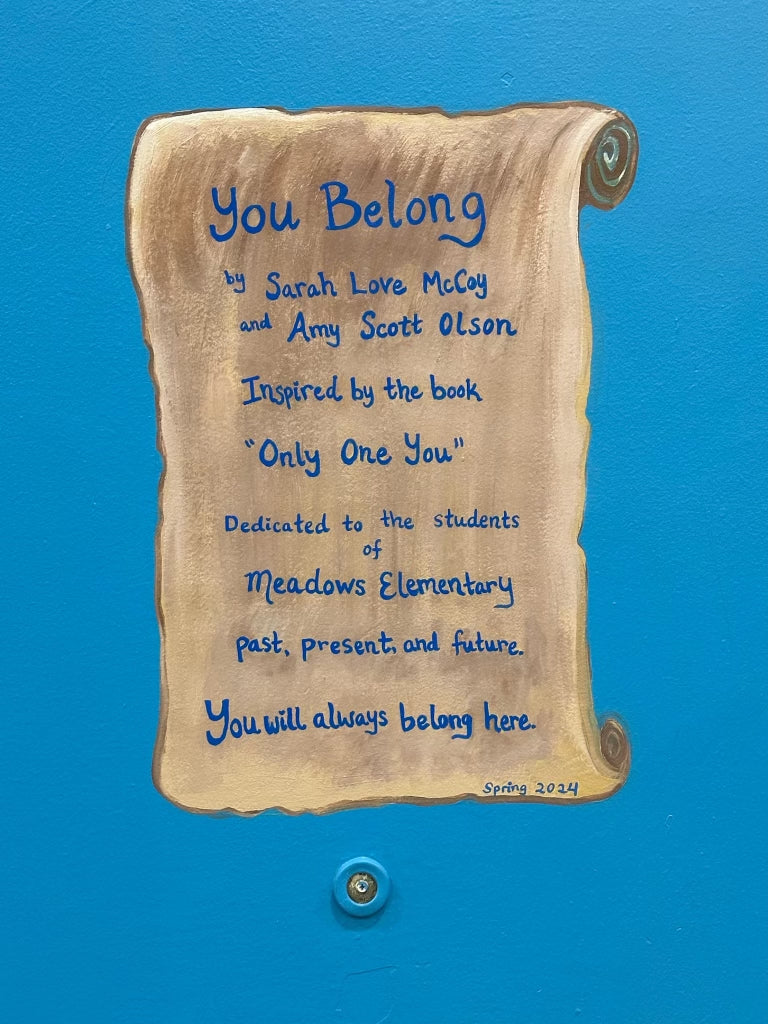 You Belong
by Sarah Love McCoy
and Amy Scott Olson
Inspired by the book
"Only One You"
Dedicated to the students
of
Meadows Elementary
past, present, and future.
You will always belong here.
Spring 2024